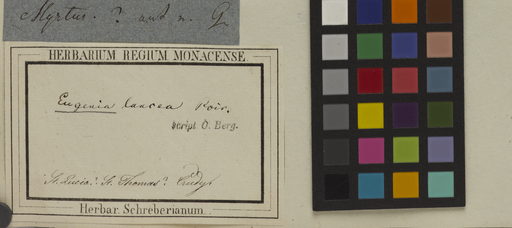 Myrtus. ? aut n. G.
HERBARIUM REGIUM MONACENSE.
Eugenia lancea Poir.
script. O. Berg.
St. Lucia? St. Thomas?
Herbar. Schreberianum.